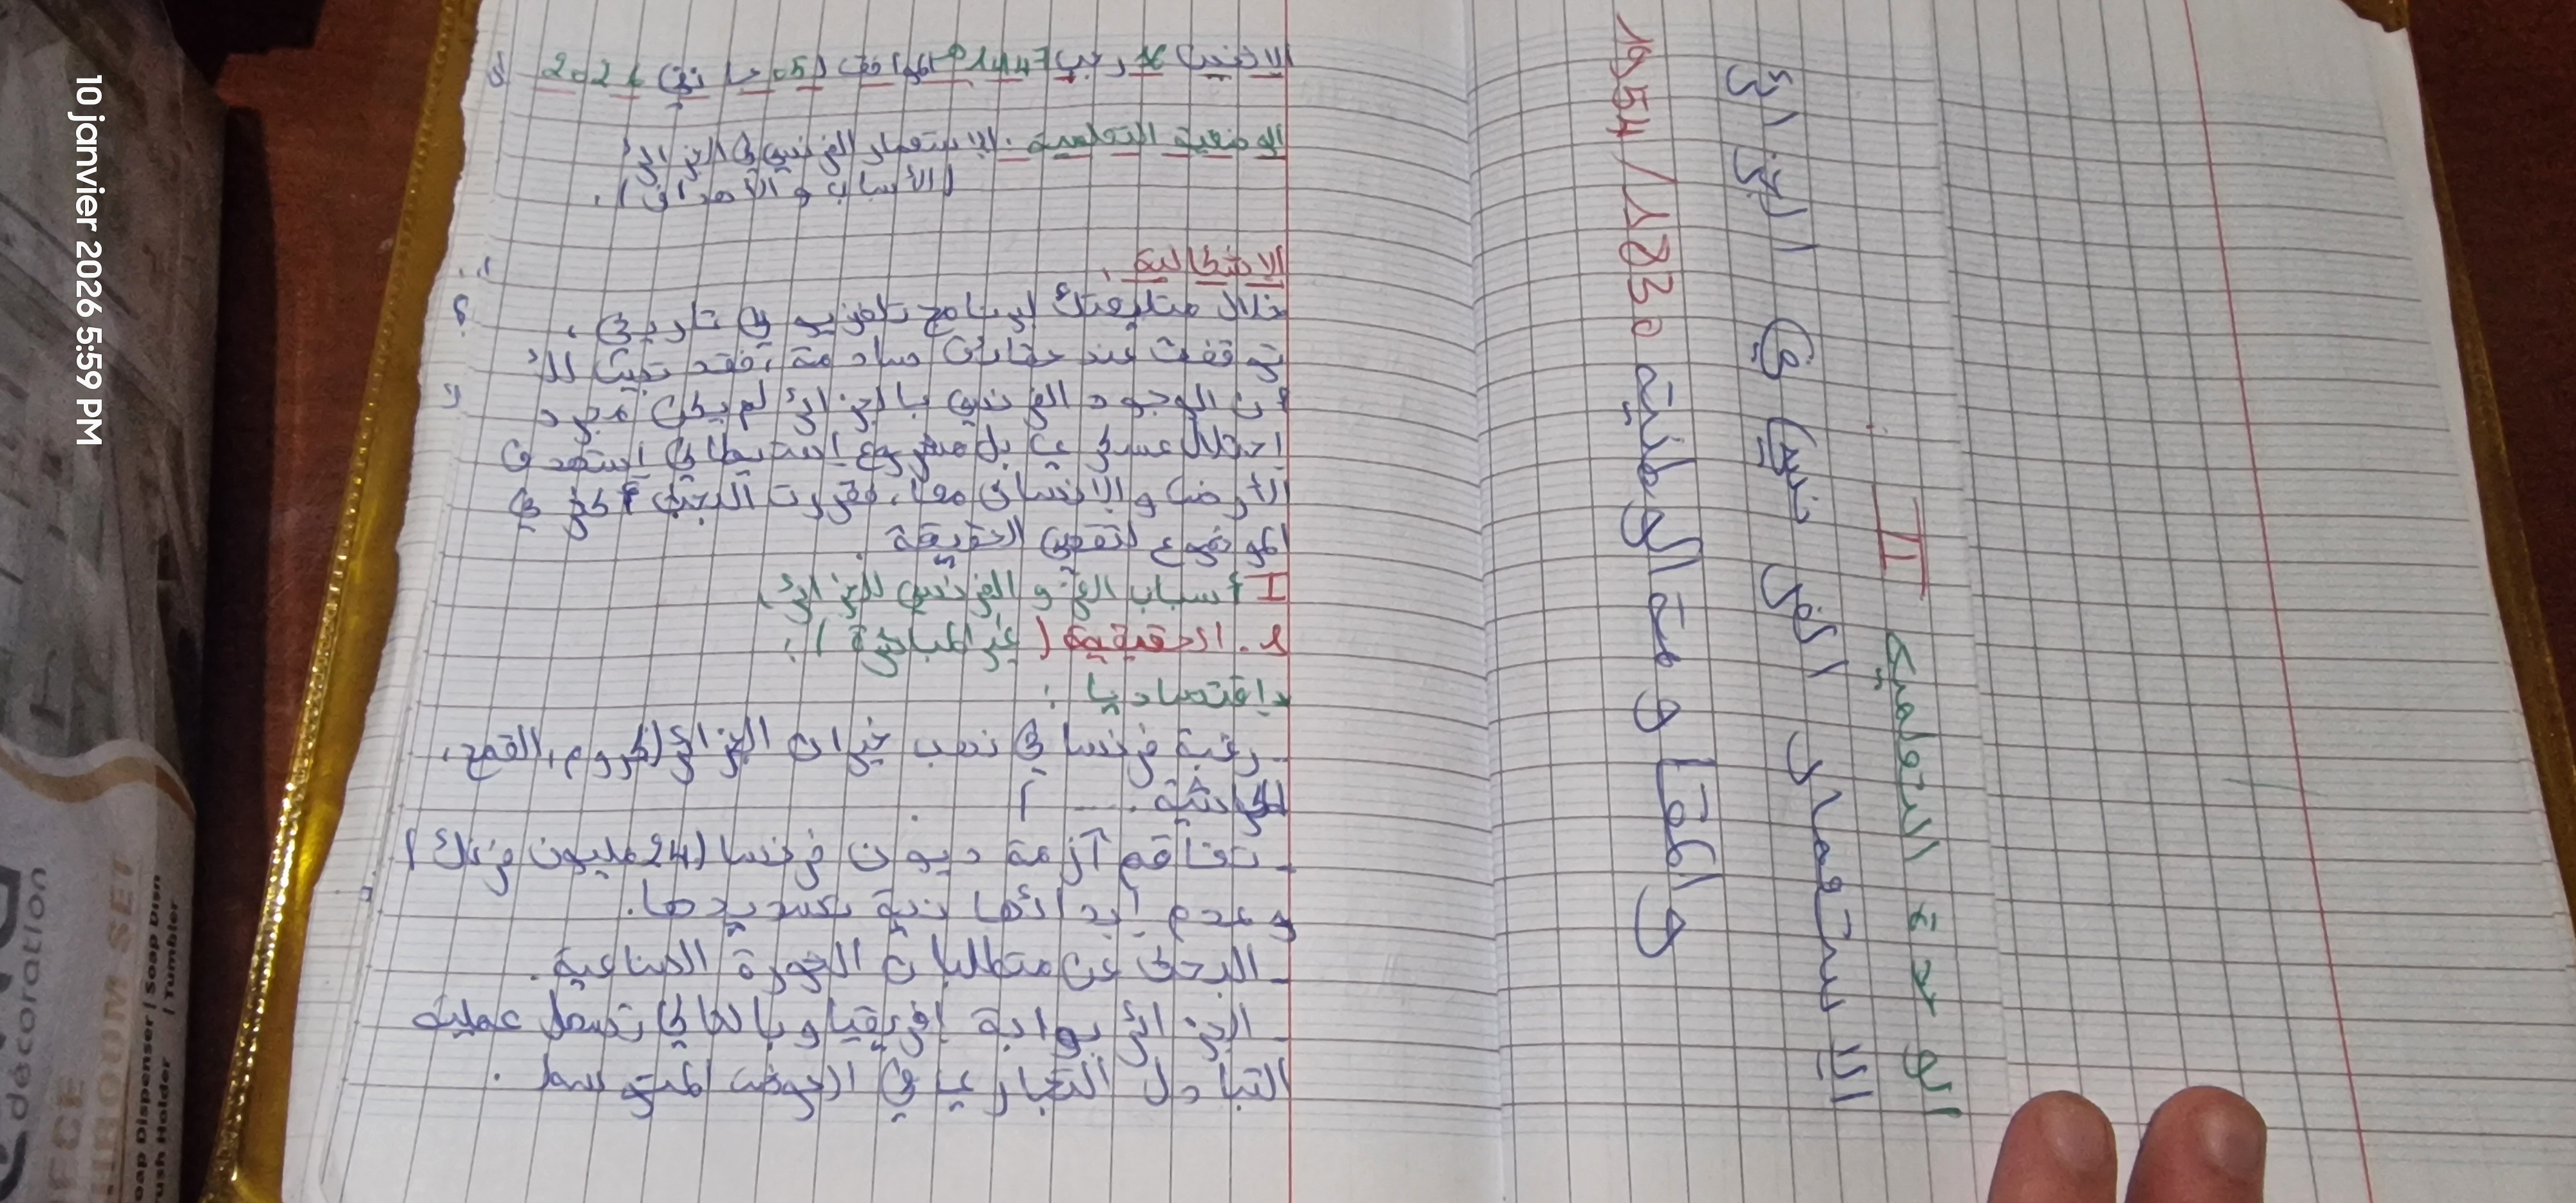 الوحدة التعلمية II
الإستعمار الفرنسي في الجزائر
والمقاومة الوطنية 1830/1954
الاثنين 16 رجب 1447ه الموافق ل 05 جانفي 2026
الوضعية التعلمية: الاستعمار الفرنسي في الجزائر
(الأسباب والأهداف).
الإشكالية:
خلال متابعتك لبرنامج تلفزيوني تاريخي،
توقفت عند حقائق صادمة، فقد تبين لك
أن الوجود الفرنسي بالجزائر لم يكن مجرد
احتلال عسكري بل مشروع استيطاني استهدف
الأرض والإنسان معا، فقررت البحث أكثر في
الموضوع لتقصي الحقيقة.
I أسباب الغزو الفرنسي للجزائر:
1. الحقيقية (غير المباشرة):
اقتصاديا:
- رغبة فرنسا في نهب خيرات الجزائر (كروم، القمح،
المواشي....).
- تفاقم أزمة ديون فرنسا (24 مليون فرنك)
وعدم إبدائها نية تسديدها.
- البحث عن متطلبات الثورة الصناعية.
- الجزائر بوابة إفريقيا وبالتالي تسهل عملية
التبادل التجاري في الحوض المتوسط.
10 janvier 2026 5:59 PM
decoration
ECE
HROOM SET
oap Dispenser | Soap Dish
rush Holder | Tumbler